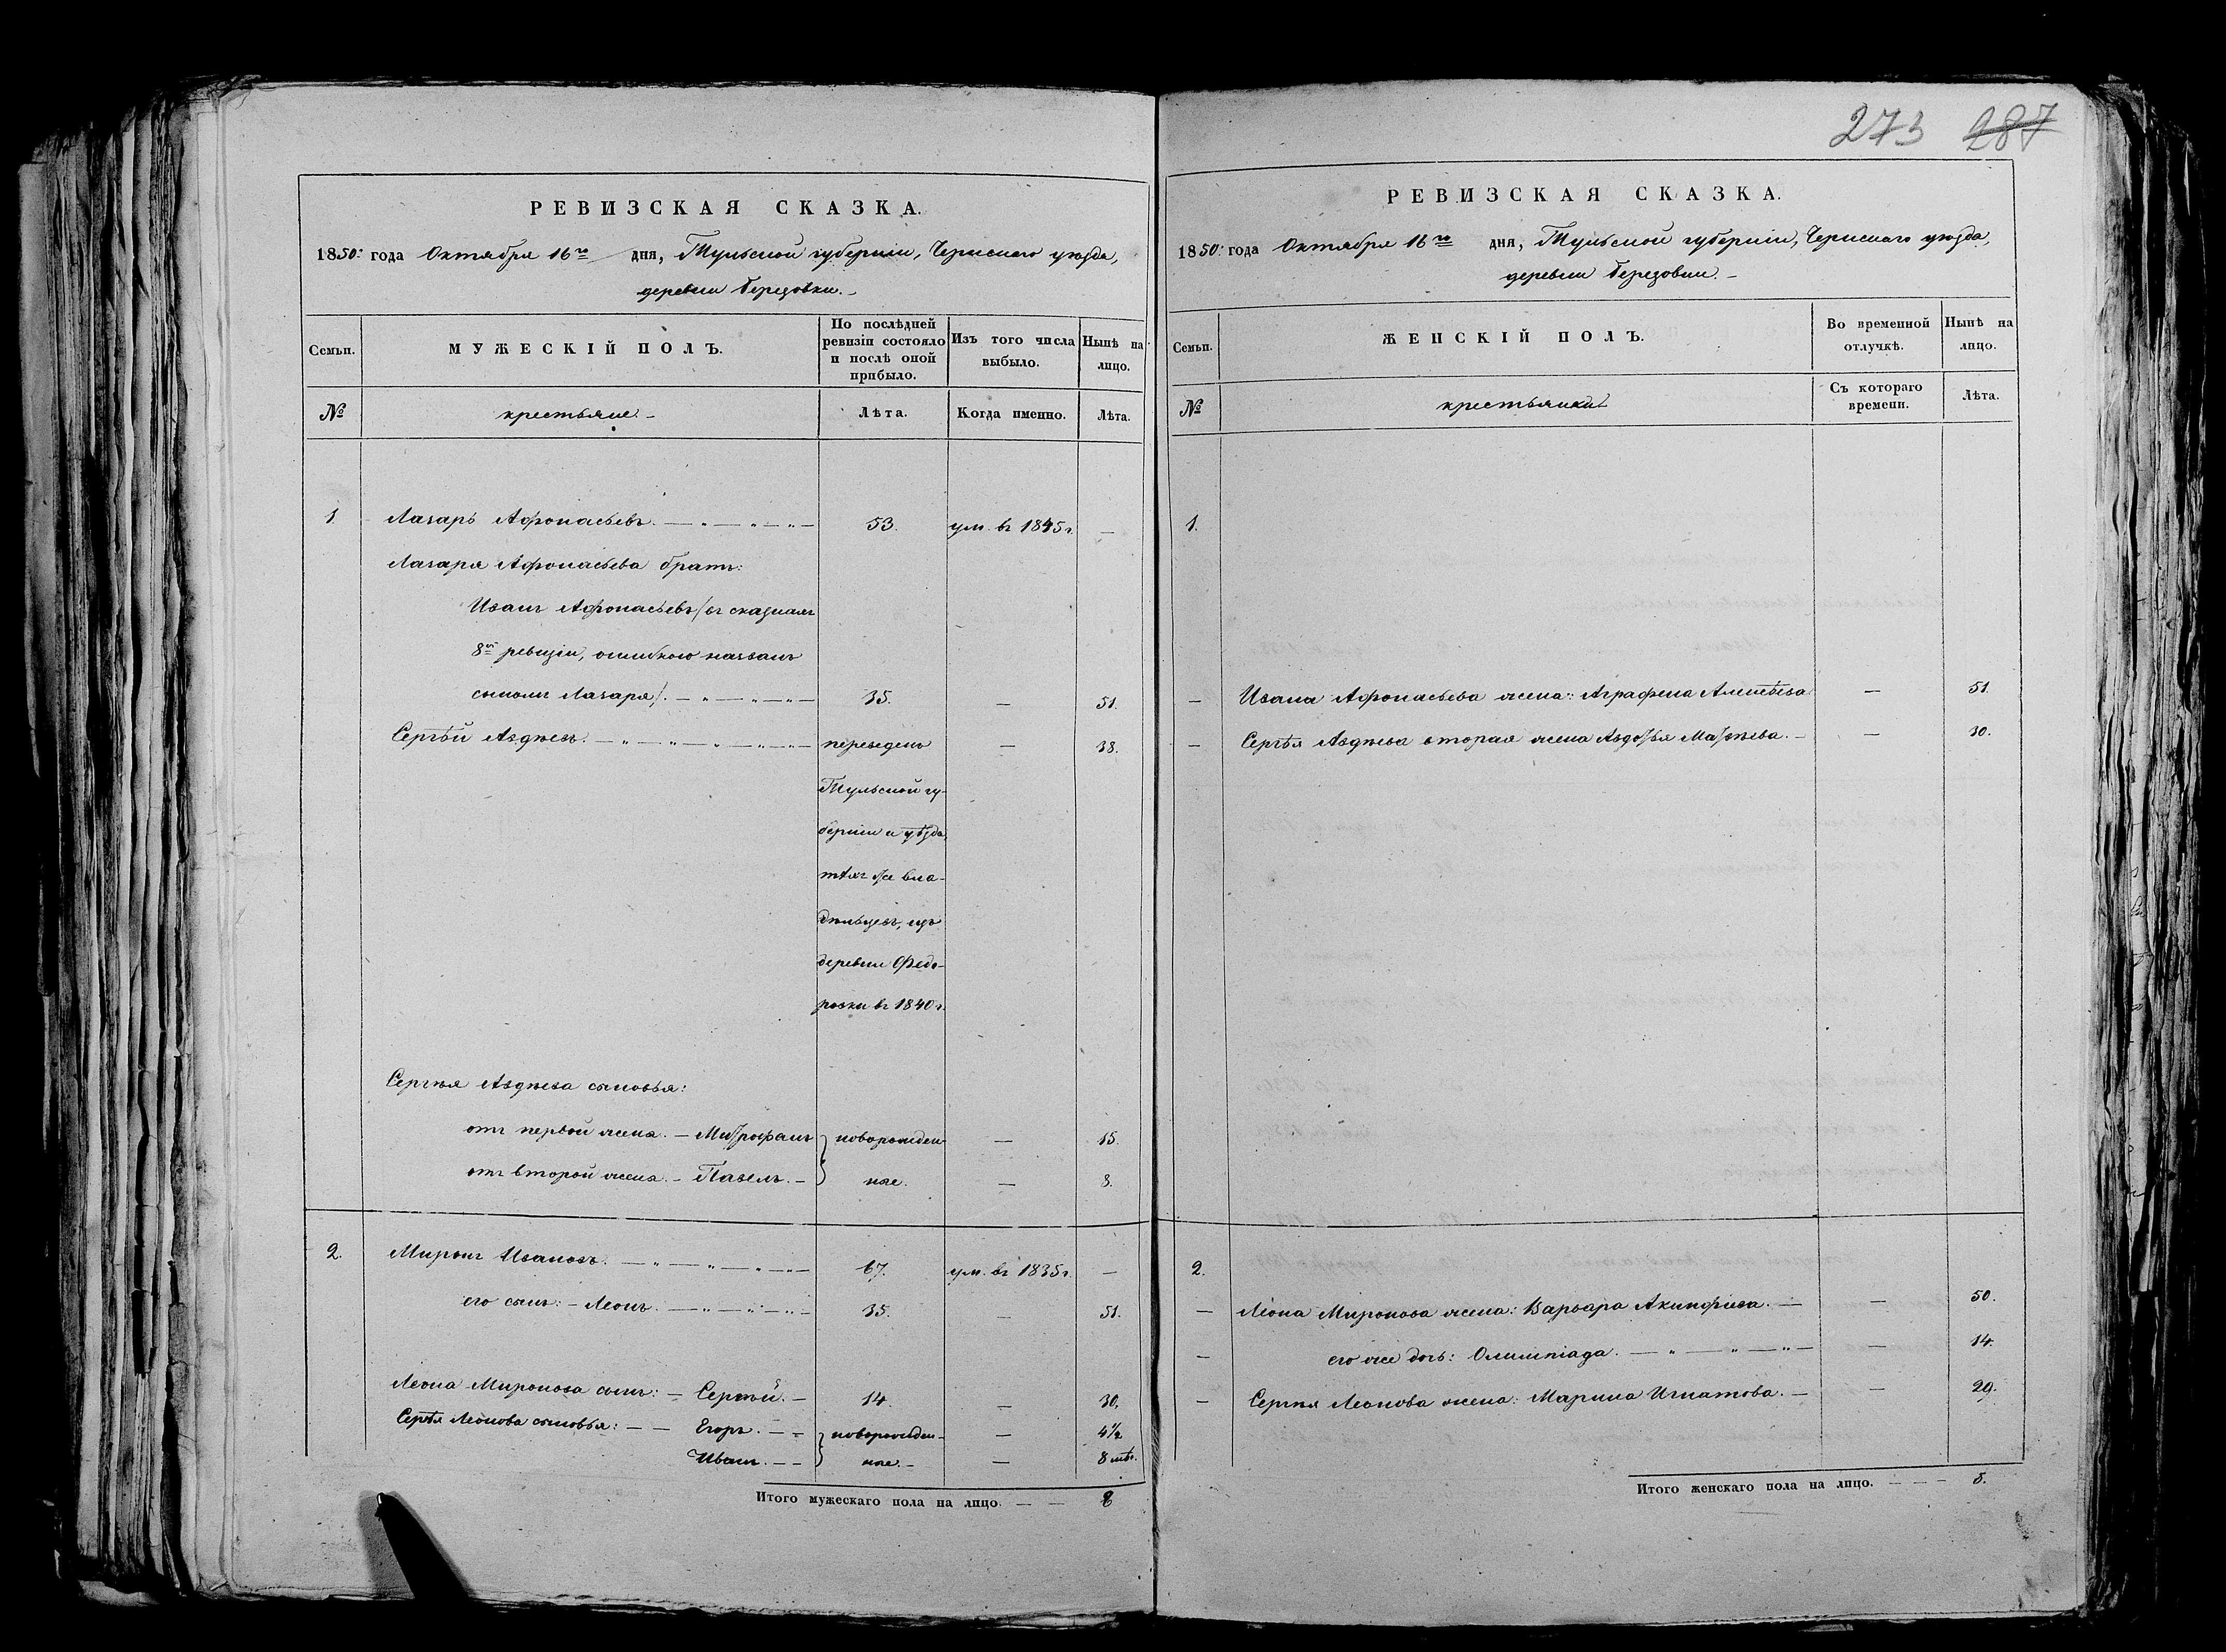 273 287
РЕВИЗСКАЯ СКАЗКА.
1850: года Октября 16го дня, Тульской губерніи, Чернскаго уѣзда,
деревни Березовки.
Семьи.
МУЖЕСКІЙ ПОЛЪ.
По послѣдней
ревизіи состояло
и послѣ оной
прибыло.
Изъ того числа
выбыло.
Нынѣ на
лицо.
№
крестьяне.
Лѣта.
Когда именно.
Лѣта.
1. Лазарь Афонасьевъ. 53. ум. въ 1845 г. —
Лазаря Афонасьева братъ:
Иванъ Афонасьевъ /въ сказкахъ
8й ревизіи, ошибкою названъ
сыномъ Лазаря/. 35. — 51.
Сергѣй Авдѣевъ. переведенъ — 38.
Тульской гу-
берніи и уѣзда,
тѣхъ же вла-
дѣльцевъ, изъ
деревни Федо-
ровки въ 1840 г.
Сергѣя Авдѣева сыновья:
отъ первой жены. — Митрофанъ новорожден- — 15.
отъ второй жены. — Павелъ. ные. — 8.
2. Миронъ Ивановъ. 67. ум. въ 1835 г. —
его сынъ: — Леонъ. 35. — 51.
Леона Миронова сынъ: — Сергѣй. 14. — 30.
Сергѣя Леонова сыновья: — Егоръ. новорожден- — 4 1/2
Иванъ. ные. — 8 мѣс.
Итого мужескаго пола на лицо. — — 8
РЕВИЗСКАЯ СКАЗКА.
1850: года Октября 16го дня, Тульской губерніи, Чернскаго уѣзда,
деревни Березовки.
Семьи.
ЖЕНСКІЙ ПОЛЪ.
Во временной
отлучкѣ.
Нынѣ на
лицо.
№
крестьянки
Съ котораго
времени.
Лѣта.
1.
— Ивана Афонасьева жена: Аграфена Алексѣева — 51.
— Сергѣя Авдѣева вторая жена Авдотья Матвѣева. — 30.
2.
— Леона Миронова жена: Варвара Акинфиева. — 50.
— его же дочь: Олимпіада. — 14.
— Сергѣя Леонова жена: Марина Игнатова. — 29.
Итого женскаго пола на лицо. — — — 5.